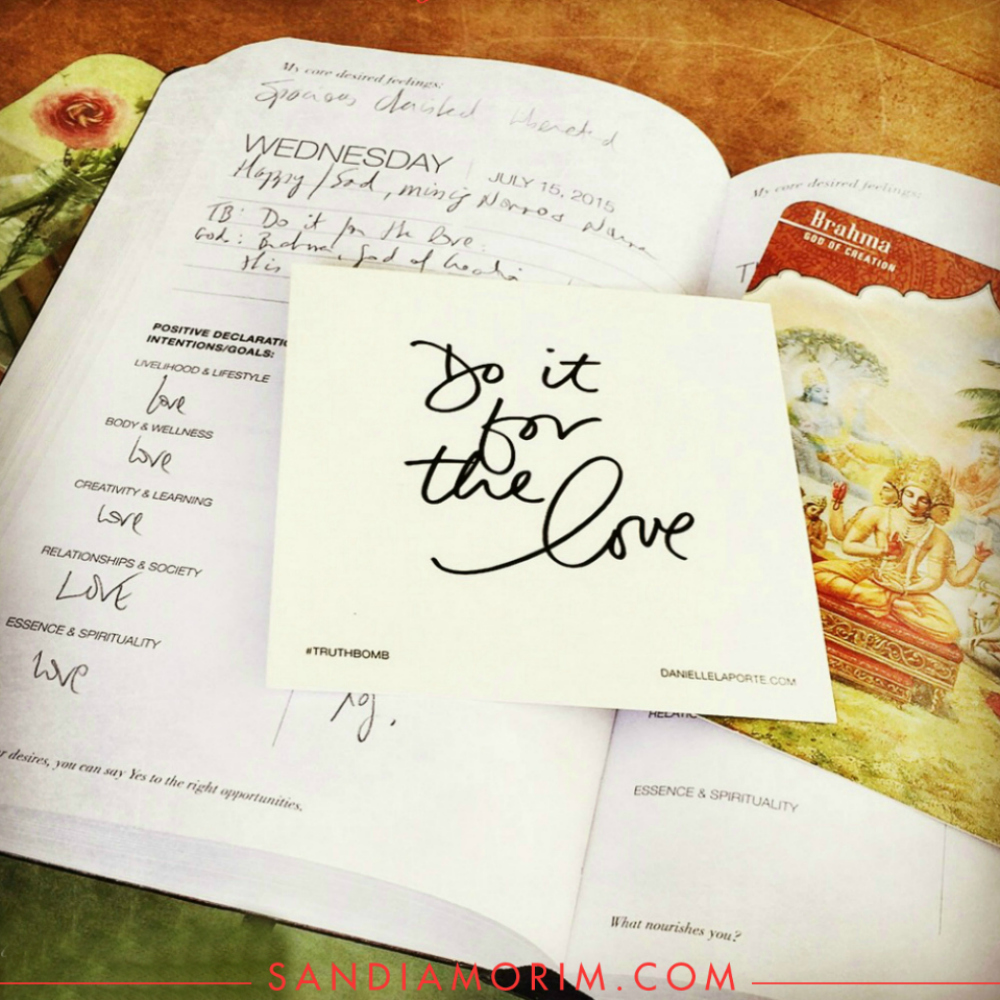 My core desired feelings:
Spacious devisted liberated
WEDNESDAY
JULY 15, 2015
Happy/Sad, missing
TB: Do it for the love.
God: Brahma, God of
His
POSITIVE DECLARATI
INTENTIONS/GOALS:
LIVELIHOOD & LIFESTYLE
love
BODY & WELLNESS
love
CREATIVITY & LEARNING
Love
RELATIONSHIPS & SOCIETY
LOVE
ESSENCE & SPIRITUALITY
love
r desires, you can say Yes to the right opportunities.
Do it
for
the love
#TRUTHBOMB
DANIELLELAPORTE.COM
My core desired feelings:
T
Brahma
GOD OF CREATION
RELATIO
ESSENCE & SPIRITUALITY
What nourishes you?
SANDIAMORIM.COM